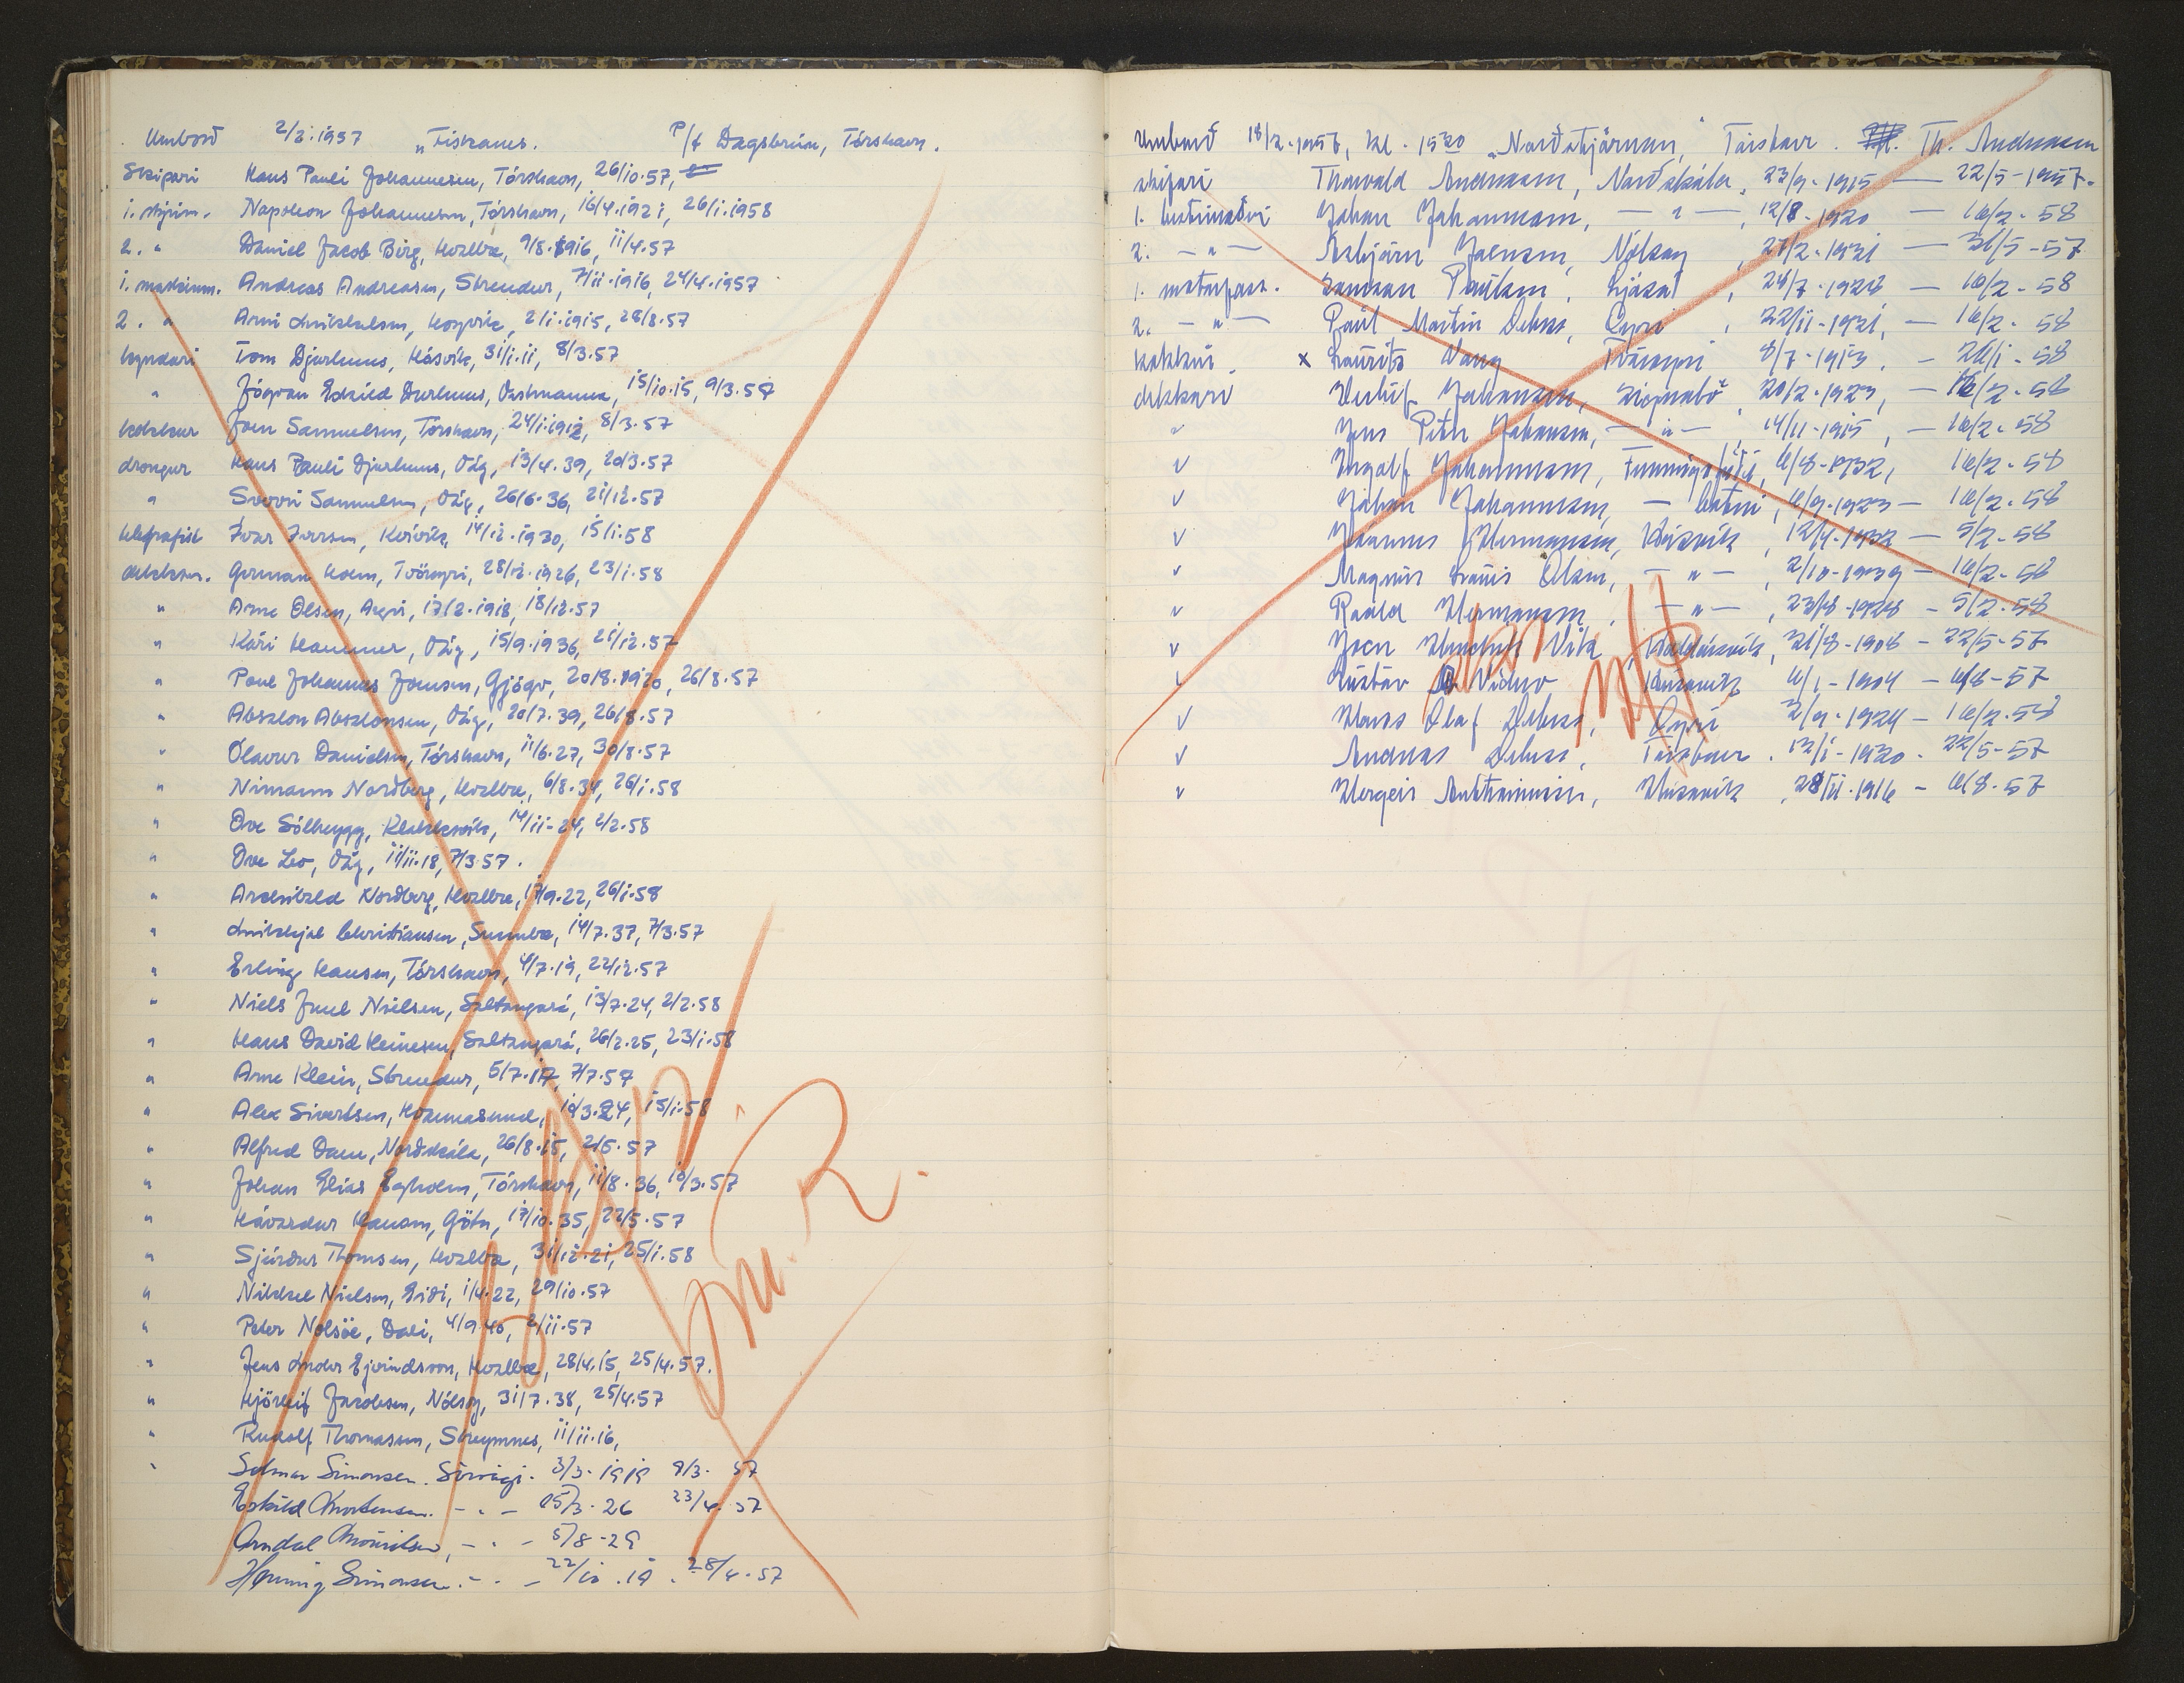 Umborð 2/2.1957 „Fiskanes. P/f Dagsbrún, Tórshavn.
Skipari Hans Pauli Johannesen, Tórshavn, 26/10.57,
1. stýrim. Napoleon Johannesen, Tórshavn, 16/4.1921, 26/1.1958
2. " Daniel Jacob Birg, Hvalba, 9/8.1916, 11/4.57
1. maskinm. Andreas Andreasen, Strendur, 7/11.1916, 24/4.1957
2. " Arni Mikkelsen, Hoyvík, 2/1.1915, 28/8.57
kyndari Tom Djurhuus, Kásvík, 31/1.11, 8/3.57
" Jógvan Eskild Durhuus, Vestmanna, 15/10.15, 9/3.57
kokkur Joen Samuelsen, Tórshavn, 24/1.1912, 8/3.57
drongur Hans Pauli Djurhuus, Vág, 13/4.39, 20/3.57
" Sverri Samuelsen, Vág, 26/6.36, 21/12.57
telegrafist Ivar Iversen, Kvívík, 14/12.1930, 15/1.58
dekksm. German Holm, Tvöroyri, 28/12.1926, 23/1.58
" Arne Olsen, Argir, 17/2.1918, 18/12.57
" Kári Hammer, Vág, 15/9.1936, 21/12.57
" Poul Johannes Joensen, Gjógv, 20/8.1920, 26/8.57
" Absalon Absalonsen, Vág, 20/7.39, 26/8.57
" Ólavur Danielsen, Tórshavn, 11/6.27, 30/8.57
" Nimann Nordberg, Hvalba, 6/8.34, 26/1.58
" Ove Sólheygg, Klakksvík, 14/11-24, 2/2.58
" Ove Leo, Vág, 11/11.18, 7/3.57.
" Archibald Nordberg, Hvalba, 17/9.22, 26/1.58
" Mikkjal Christiansen, Sumba, 14/7.37, 7/3.57
" Erling Hansen, Tórshavn, 4/7.19, 22/12.57
" Niels Juul Nielsen, Saltangará, 13/7.24, 2/2.58
" Hans David Heinesen, Saltangará, 26/2.25, 23/1.58
" Arne Klein, Strendur, 5/7.17, 7/7.57
" Alex Sivertsen, Hvannasund, 10/3.24, 15/1.58
" Alfred Dam, Norðskála, 26/8.15, 2/5.57
" Johan Elias Egholm, Tórshavn, 11/8.36, 10/3.57
" Hávardur Hansen, Götu, 17/10.35, 22/5.57
" Sjúrður Thomsen, Hvalba, 31/12.21, 25/1.58
" Nikkel Nielsen, Eiði, 1/4.22, 29/10.57
" Peter Nolsöe, Dali, 4/9.40, 2/11.57
" Jens Andor Ejvindsson, Hvalba, 28/4.15, 25/4.57.
" Hjörleif Jacobsen, Nólsoy, 31/7.38, 25/4.57
" Rudolf Thomassen, Streymnes, 11/11.16,
" Solmar Simonsen. Sörvági. 3/3.1919 9/3. 57
Eskild Mortensen. - " - 15/3.26 23/4.57
Arndal Mouritsen, - " - 5/8-29
Henning Simonsen. - " - 22/10.19. 28/4.57
Umborð 18/2.1958, kl. 1520 „Norðstjörnan," Tórshavn. Th. Andreasen
skipari Thorvald Andreasen, Norðskála, 23/9-1915 — 22/5-1957.
1. bestimaður Johan Johannesen, — " —, 12/8-1920 — 16/2-58
2. — " — Asbjörn Joensen, Nólsoy, 27/2-1931 — 31/5-57
1. motorpass. Samson Poulsen, Ljósá, 24/7-1928 — 16/2-58
2. — " — Poul Martin Debess, Oyri, 22/11-1921, — 16/2-58
kokkur x Laurits Vang Tvöroyri 8/7-1913. — 26/1-58
dekkari Herluf Johansen, 20/2-1923, — 16/2-58
" Jens Peter Johansen, — " —, 14/11-1915, — 16/2-58
v Ingolf Johannesen, Funningsfjørð, 6/8-1932, 16/2-58
v Johan Johannesen, — botni, 6/9-1923 — 16/2-58
v Joannes Hermansen, Húsavík, 12/4-1932 — 5/2-58
v Magnus Louis Olsen, — " —, 2/10-1939 — 16/2-58
v Roald Hermansen, — " —, 23/8-1928 — 5/2-58
v Joen Vik, Haldórsvík, 21/8-1908 — 22/5-57
v Gustav Viderø, Húsavík 6/1-1904 — 4/6-57
v Hans Olaf Debess, Oyri 2/9-1924 — 16/2-58
v Andreas Debess, Tórshavn. 12/1-1920. 22/5-57
v Hergeir Húsavík, 28/11-1916 — 6/8-57